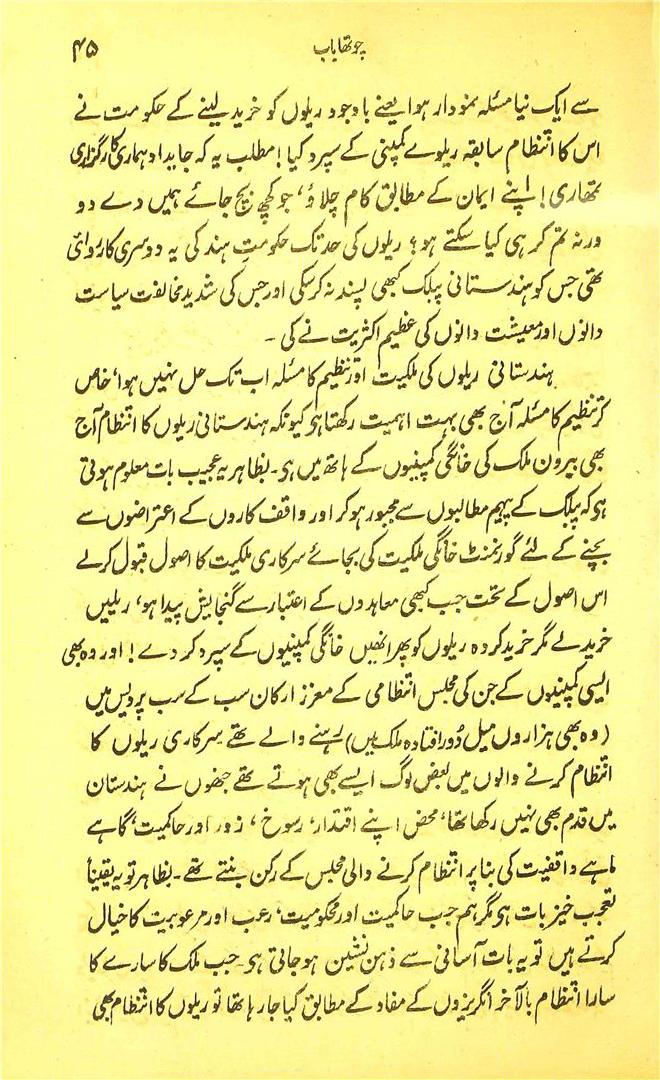 چوتھا باب
۴۵
سے ایک نیا مسئلہ نمودار ہوا یعنے باوجود ریلوں کو خرید لینے کے حکومت نے
اس کا انتظام سابقہ ریلوے کمپنی کے سپرد کیا! مطلب یہ کہ جایداد ہماری کارگزاری
تمھاری! اپنے ایمان کے مطابق کام چلاؤ، جو کچھ بچ جائے ہمیں دے دو
ورنہ تم کر ہی کیا سکتے ہو؟ ریلوں کی حد تک حکومتِ ہند کی یہ دوسری کارروائی
تھی جس کو ہندستانی پبلک کبھی پسند نہ کرسکی اور جس کی شدید مخالفت سیاست
دانوں اور معیشت دانوں کی عظیم اکثریت نے کی ۔
ہندستانی ریلوں کی ملکیت اور تنظیم کا مسئلہ اب تک حل نہیں ہوا، خاص
کر تنظیم کا مسئلہ آج بھی بہت اہمیت رکھتا ہی کیونکہ ہندستانی ریلوں کا انتظام آج
بھی بیرون ملک کی خانگی کمپنیوں کے ہاتھ میں ہی۔ بظاہر یہ عجیب بات معلوم ہوتی
ہی کہ پبلک کے پیہم مطالبوں سے مجبور ہوکر اور واقف کاروں کے اعتراضوں سے
بچنے کے لئے گورنمنٹ خانگی ملکیت کی بجائے سرکاری ملکیت کا اصول قبول کرلے
اس اصول کے تحت جب کبھی معاہدوں کے اعتبار سے گنجایش پیدا ہو، ریلیں
خریدلے مگر خرید کردہ ریلوں کو پھر انھیں خانگی کمپنیوں کے سپرد کردے! اور وہ بھی
ایسی کمپنیوں کے جن کی مجلس انتظامی کے معزز ارکان سب کے سب پردیس میں
(وہ بھی ہزاروں میل دُور افتادہ ملک میں) رہنے والے تھے سرکاری ریلوں کا
انتظام کرنے والوں میں بعض لوگ ایسے بھی ہوتے تھے جنھوں نے ہندستان
میں قدم بھی نہیں رکھا تھا، محض اپنے اقتدار، رسوخ، زور اور حاکمیت، گاہے
ماہے واقفیت کی بنا پر انتظام کرنے والی مجلس کے رکن بنتے تھے۔ بظاہر تو یہ یقیناً
تعجب خیز بات ہی مگر ہم جب حاکمیت اور محکومیت، رعب اور مرعوبیت کا خیال
کرتے ہیں تو یہ بات آسانی سے ذہن نشین ہو جاتی ہی۔ جب ملک کا سارے کا
سارا انتظام بالآخر انگریزوں کے مفاد کے مطابق کیا جا رہا تھا تو ریلوں کا انتظام بھی